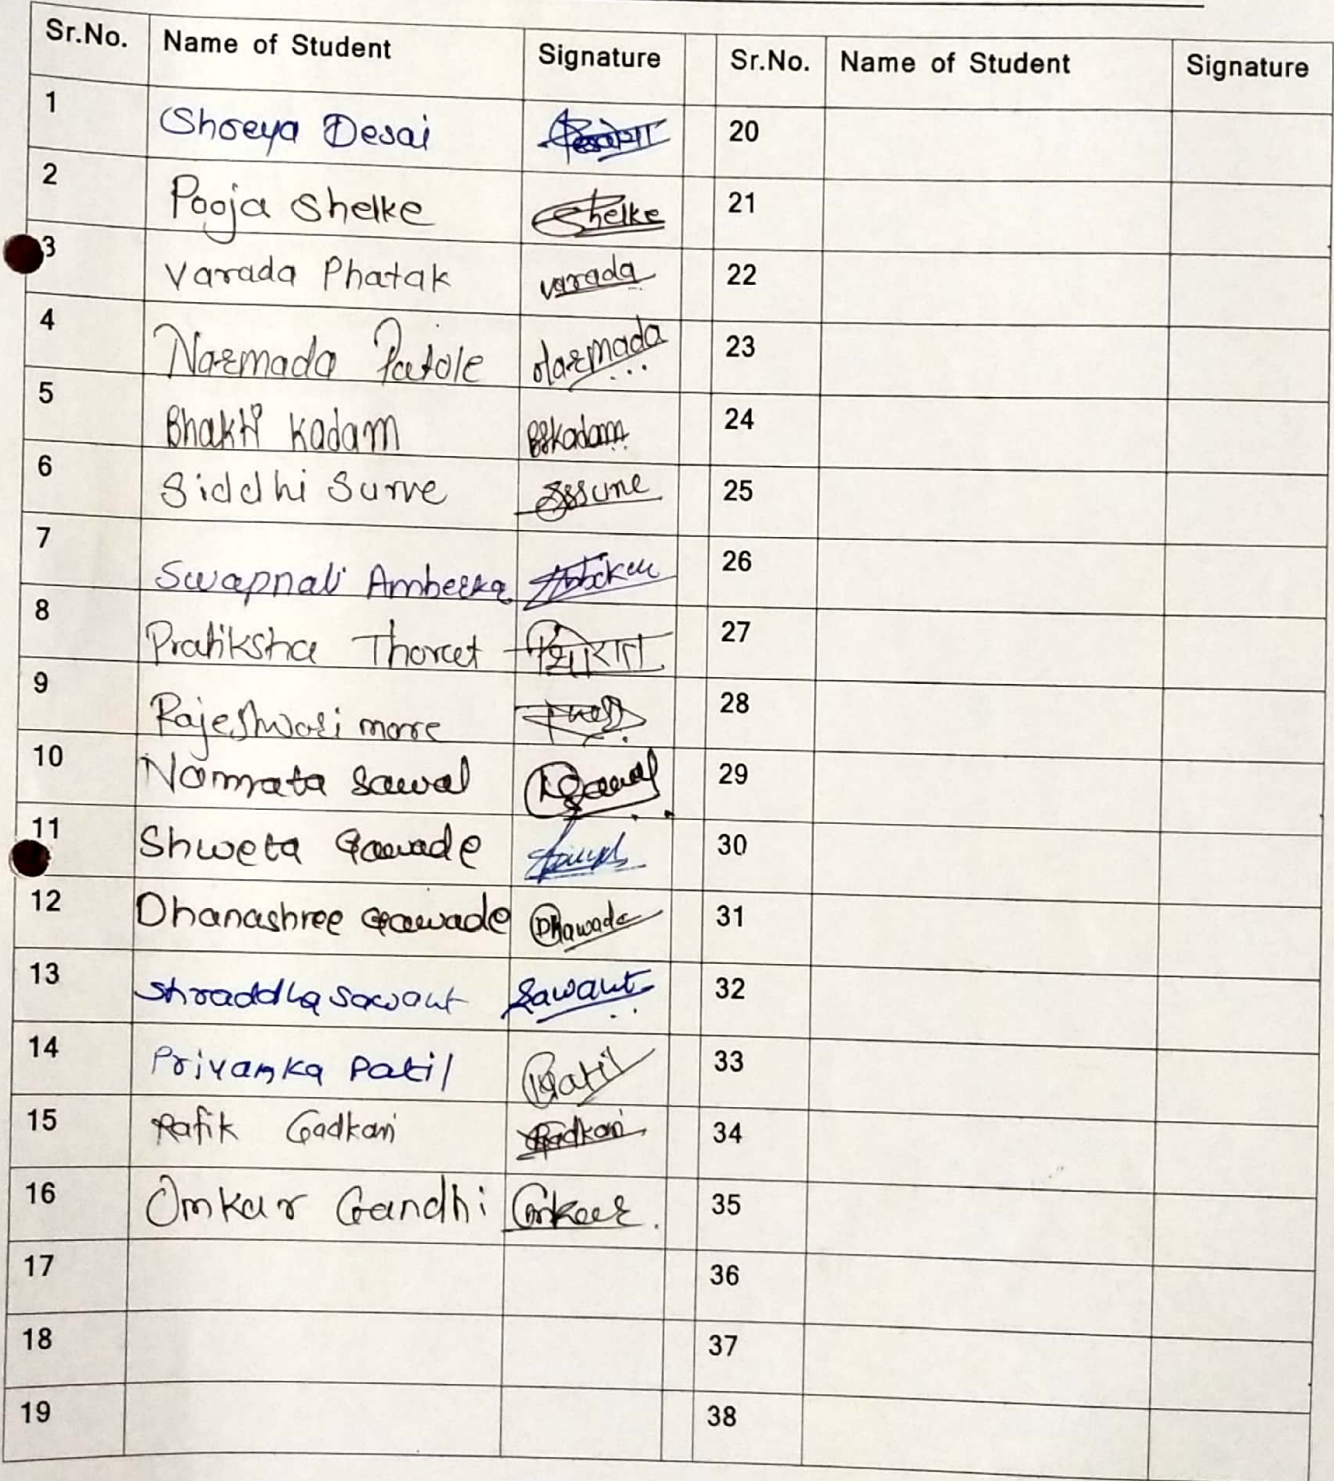 Sr.No. Name of Student Signature Sr.No. Name of Student Signature
1 Shreya Desai 20
2 Pooja Shelke Shelke 21
3 Varada Phatak varada 22
4 Narmada Patole Narmada 23
5 Bhakti Kadam BSKadam 24
6 Siddhi Surve 25
7 Swapnali Amberka 26
8 Pratiksha Thorat थोरात 27
9 Rajeshwari more 28
10 Namrata Sawal 29
11 Shweta Gawade 30
12 Dhanashree Gawade 31
13 Shraddha Sawant Sawant 32
14 Priyanka Patil Patil 33
15 Rafik Gadkari Gadkari 34
16 Omkar Gandhi Omkar 35
17 36
18 37
19 38